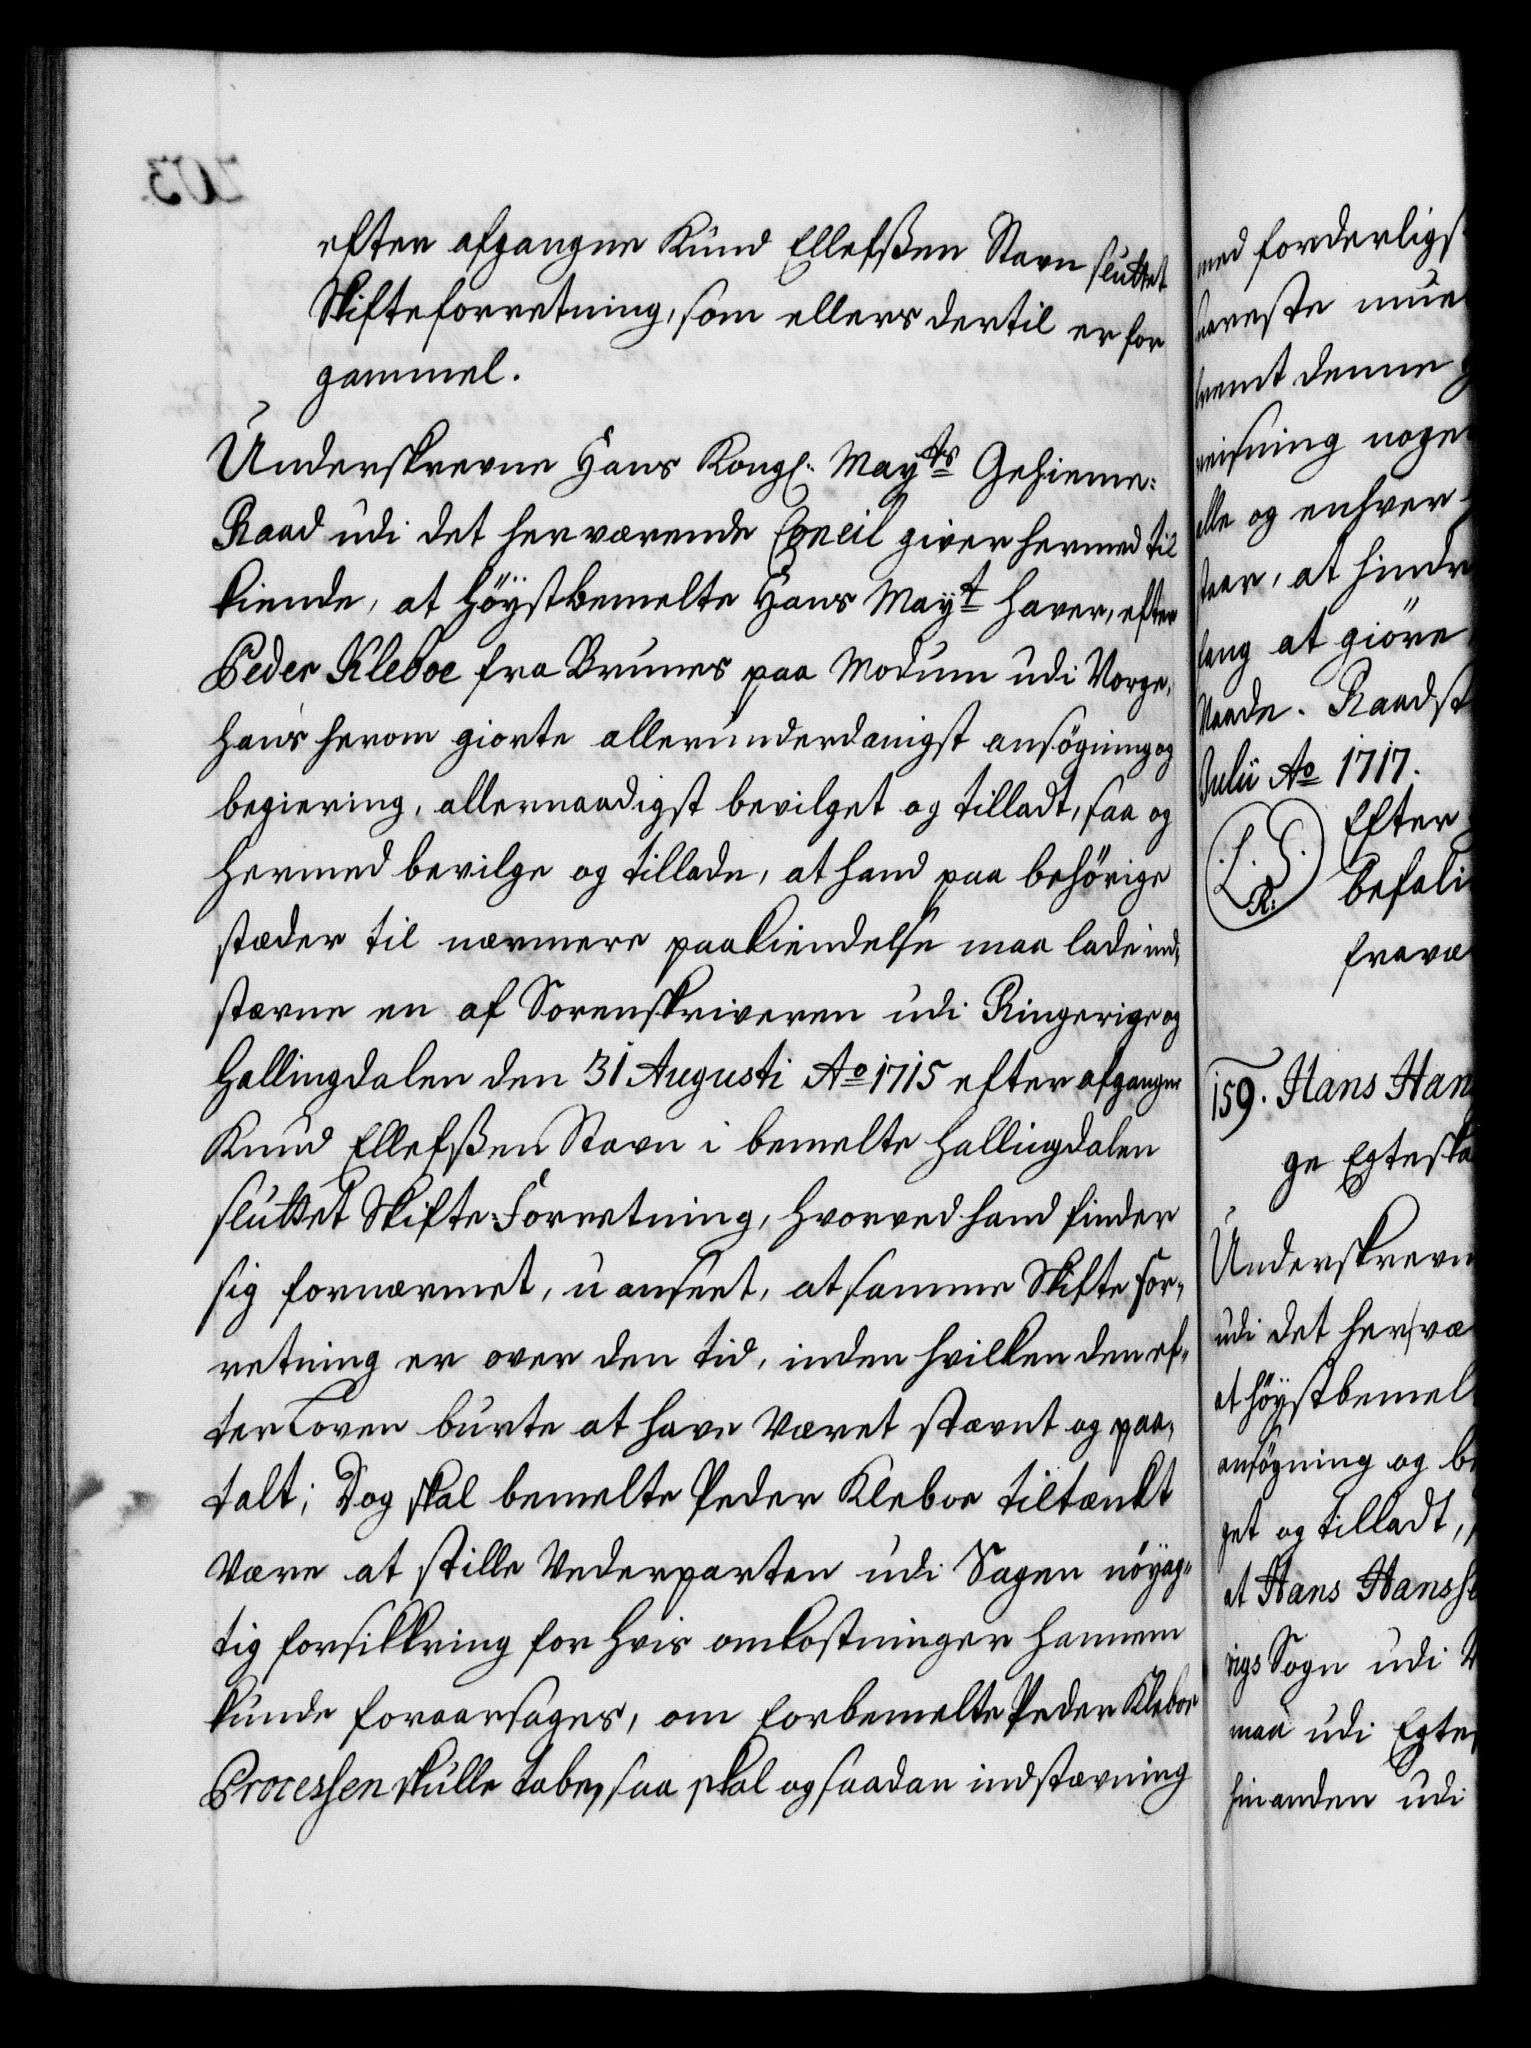 203.
efter afgangne Knud Ellefsßen Stavn sluttet
Skifteforretning, som ellers dertil er for
gammel.
Underskrevne Hans Kongl. Mayts Gehieme-
Raad udi det herværende Conceil giver hermed til
kiende, at Höystbemelte Hans Mayt haver, efter
Peder Kleboe fra Brunes paa Modum udi Norge,
hans herom giorte allerunderdanigst ansøgning og
begiering, allernaadigst bevilget og tilladt, saa og
hermed bevilge og tillade, at hand paa behørige
stæder til nærmere paakiendelse maa lade ind-
stævne en af Sorenskriveren udi Ringerige og
Hallingdalen den 31 Augusti Ao 1715 efter afgangne
Knud Ellefsßen Stavn i bemelte Hallingdalen
sluttet Skifte-Forretning, hvorved hand finder
sig fornærmet, uanseet, at samme Skifte For-
retning er over den tid, inden hvilken den ef-
ter Loven burte at have Været stævnt og paa-
talt; Dog skal bemelte Peder Kleboe tiltænkt
Være at stille Vederparten udi Sagen nöyag-
tig forsikkring for hvis omkostninger hannem
kunde foraarsages, om forbemelte Peder Kleboe
Processen skulle tabe, saa skal og saadan indstævning
med forderligst
mue
denne
visning noge
alle og enhver
staar, at hindr
lang at giöre
Naade. Raadst
Julii Ao 1717.
L. S.
R:
Efter
befali
fravæ
159. Hans Han
ge Egteska
Underskrevn
udi det hervære
at höystbemel
ansøgning og be
get og tilladt,
at Hans Hansse
rigs Sogn udi
maa udi Egte
hinanden udi